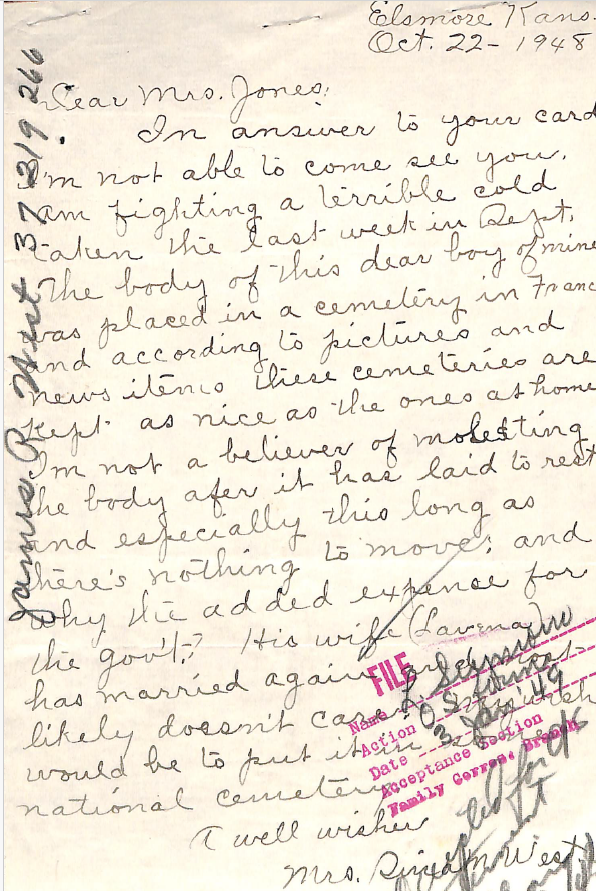 Elsmore Kans.
Oct. 22- 1948
Dear Mrs. Jones:
In answer to your card
I'm not able to come see you.
am fighting a terrible cold
taken the last week in Sept.
The body of this dear boy of mine
was placed in a cemetery in Franc
and according to pictures and
news items these cemeteries are
kept as nice as the ones at home
I'm not a believer of molesting
the body afer it has laid to rest
and especially this long as
there's nothing to move; and
why the added expense for
the gov't;? His wife (Lavena)
has married again and most
likely doesn't care
would be to put it in
national cemetery
A well wisher
Mrs. M. West.
James R West 37 219 266
FILE
Name
Action
Date 3 Jan 49
Acceptance Section
Family Corres. Branch